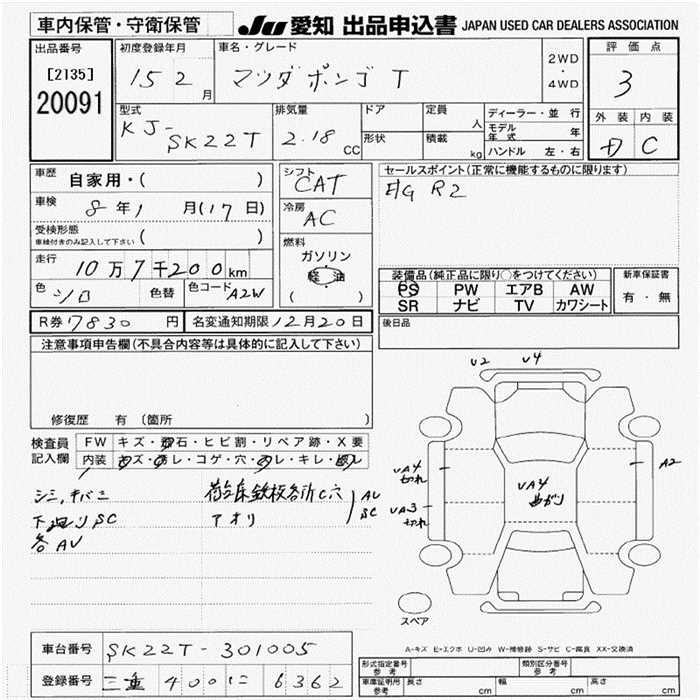 車内保管・守衛保管
JU 愛知 出品申込書 JAPAN USED CAR DEALERS ASSOCIATION
出品番号
[2135]
20091
初度登録年月
15 2 月
車名・グレード
マツダボンゴ T
2WD
・
4WD
評価点
3
外装 内装
D C
型式
KJ-
SK22T
排気量
2.18 CC
ドア
形状
定員
人
積載
kg
ディーラー・並 行
モデル年式 年
ハンドル 左・右
車歴
自家用・( )
車検
8年1月(17日)
受検形態
車検付きのみ記入して下さい ( )
走行
10万7千200km
色
シロ
色替
色コード
A2W
シフト
CAT
冷房
AC
燃料
ガソリン
軽 油
( )
セールスポイント(正常に機能するものに限ります)
E/G R2
装備品(純正品に限り○をつけてください)
PS PW エアB AW
SR ナビ TV カワシート
新車保証書
有・無
R券 7830 円
名変通知期限 12月20日
後日品
注意事項申告欄(不具合内容等は具体的に記入して下さい)
修復歴 有 〔箇所 〕
検査員
記入欄
FW キズ・飛石・ヒビ割・リペア跡・X要
内装 キズ・汚レ・コゲ・穴・スレ・キレ・取レ
シミ,キバミ
下廻りSC
各AU
荷台床鉄板各所C穴
アオリ
AU
SC
U2 U4
UA4
切れ
UA3
切れ
UA4
曲がり
A2
スペア
A-キズ E-エクボ U-凹み W-補修跡 S-サビ C-腐食 XX-交換済
車台番号 SK22T-301005
登録番号 三重 400 に 6362
形式指定番号
参考
類別区分番号
参考
車庫証明用
参考
長さ cm
幅 cm
高さ cm